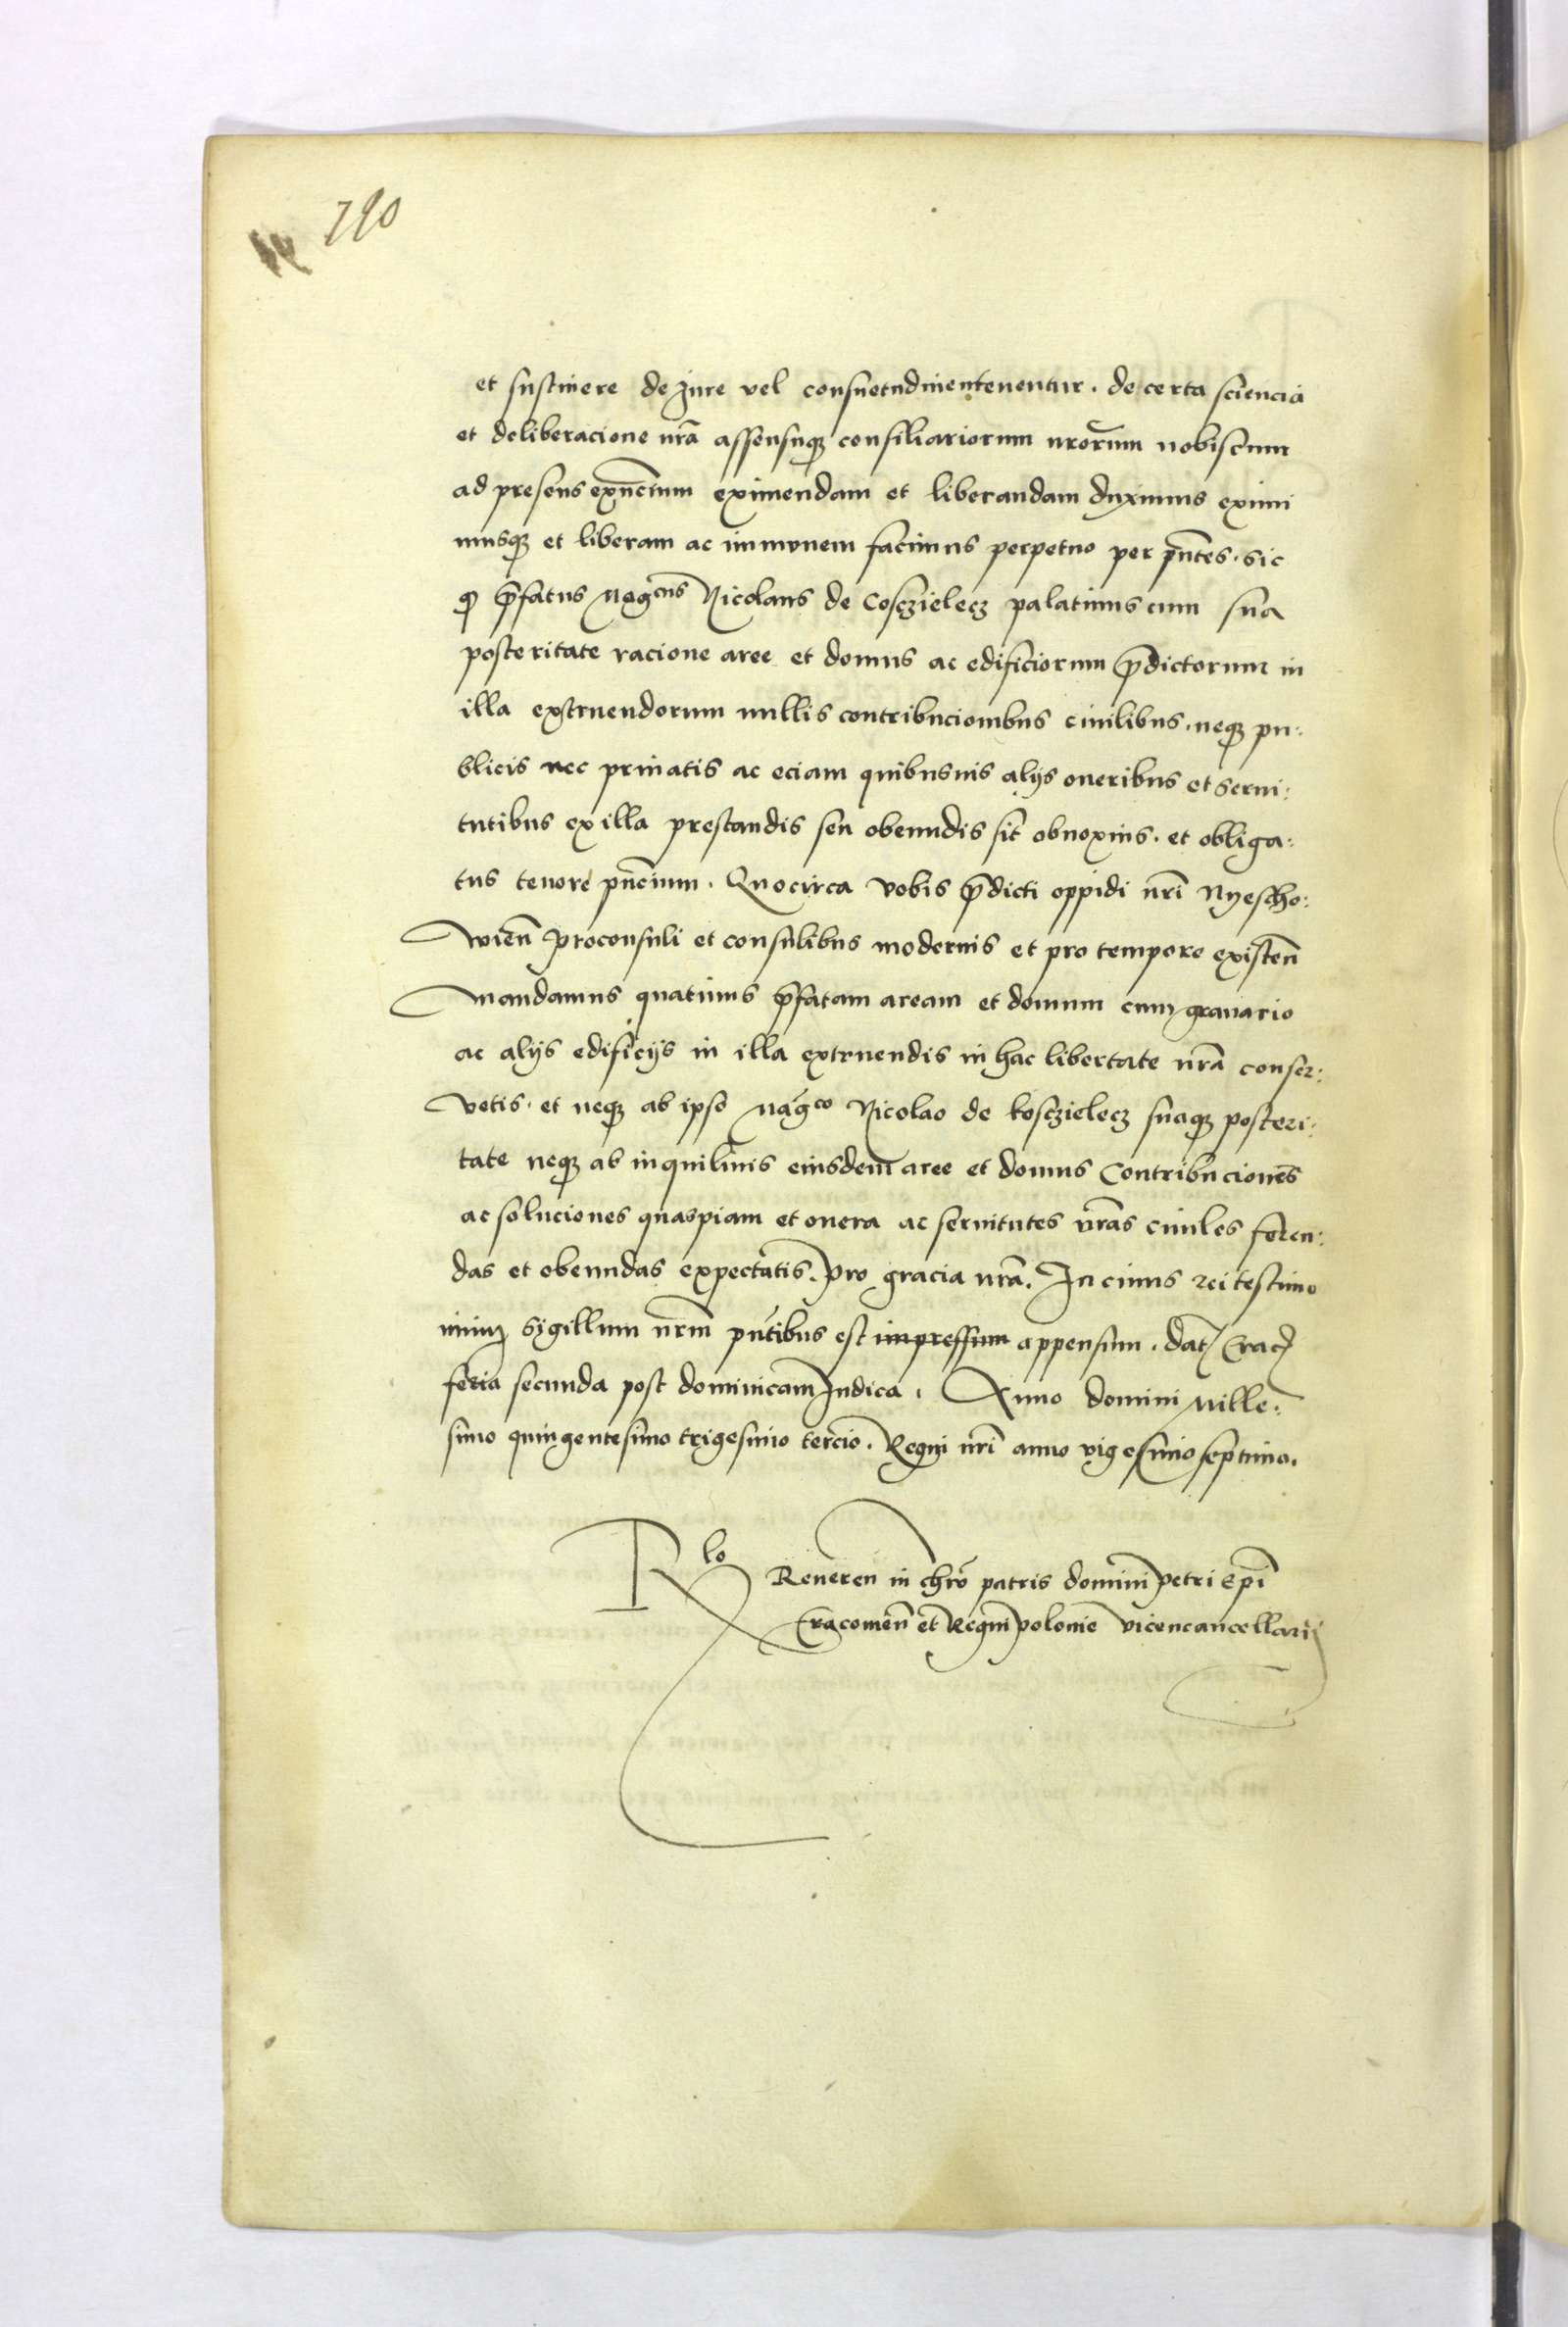 790
et sustinere de Jure vel consuetudine tenentur. de certa sciencia
et deliberacione nrã assensuq consiliariorum nrorum nobiscum
ad presens exñcium eximendam et liberandam duximus eximi
musq et liberam ac immonem facimus perpetuo per pñtes. Sic
q p̃fatus Mag^cus Nicolaus de Cosczielecz palatinus cum sua
posteritate racione aree et domus ac edificiorum p̃dictorum in
illa exstruendorum nullis contribucionibus ciuilibus. neq pu:
blicis nec priuatis ac eciam quibusuis alijs oneribus et serui:
tutibus ex illa prestandis seu obeundis sit obnoxius. et obliga:
tus tenore pñcium. Quocirca vobis p̃dicti oppidi nrĩ Nyescho:
wieñ proconsuli et consulibus modernis et pro tempore existeñ
Mandamus quatinus p̃fatam aream et domum cum granario
ac alijs edificijs in illa extruendis in hac libertate nrã conser:
vetis. et neq ab ipso Mag^co Nicolao de kosczielecz suaq posteri:
tate neq ab inquilinis eiusdem aree et domus Contribuciones
ac soluciones quaspiam et onera ac seruitutes vrãs ciuiles feren:
das et obeundas expectatis. pro gracia nrã. In cuius rei testimo
nium Sigillum nrm̃ pñtibus est impressum appensum. dat Crac
feria secunda post dominicam Iudica. Anno domini Mille:
simo quingentesimo trigesimo tercio. Regni nrĩ anno vigesimo septimo.
R^lo Reueren in chrõ patris domini petri Epĩ
Cracouieñ et Regni polonie vicencancellarij